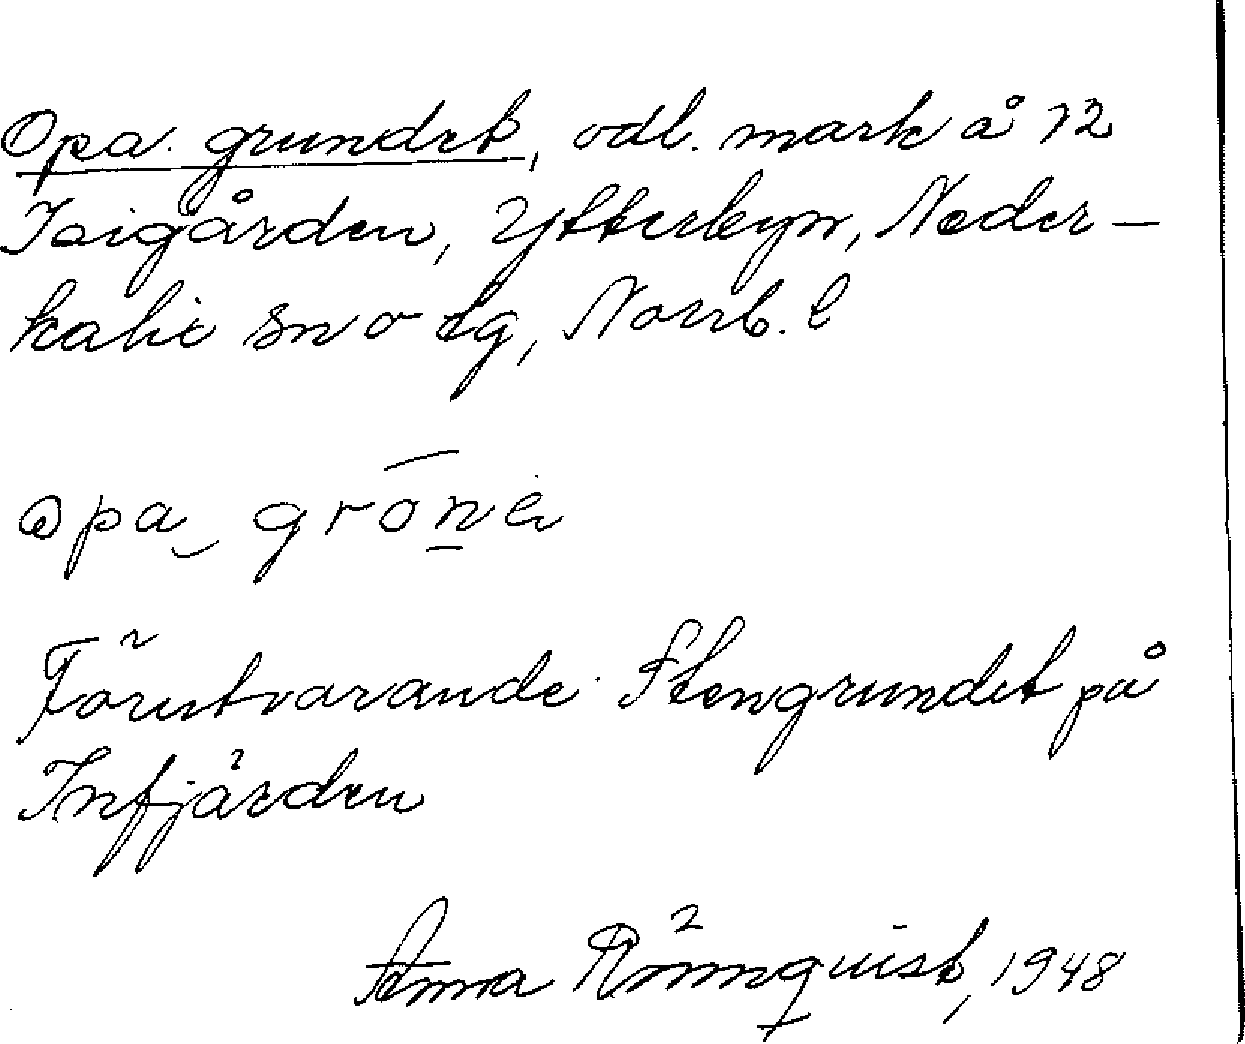 Opa grundet, odl. mark å 12
Isigården, Ytterbyn, Neder-
kalix sn o tg, Norrb. l
opa grōṉe
Förutvarande Stengrundet på
Infjärden
Anna Rönnquist, 1948